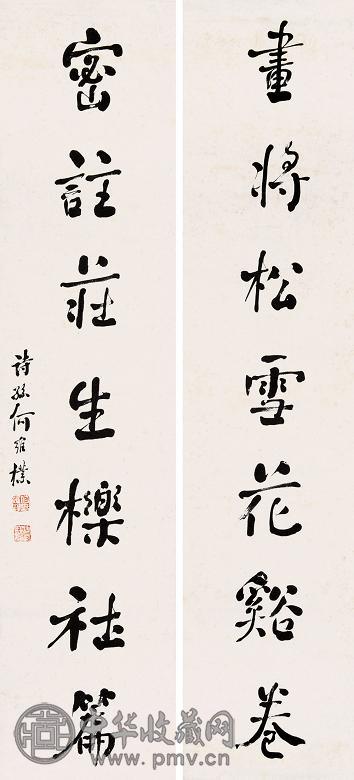 畫將松雪花谿卷
密註莊生櫟社篇
詩孫何維樸
中华收藏网
www.pmv.cn